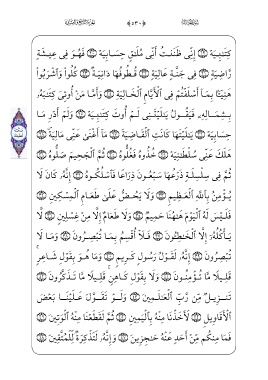 كِتَٰبِيَهْ ۝١٩ إِنِّى ظَنَنتُ أَنِّى مُلَٰقٍ حِسَابِيَهْ ۝٢٠ فَهُوَ فِى عِيشَةٍ
رَّاضِيَةٍ ۝٢١ فِى جَنَّةٍ عَالِيَةٍ ۝٢٢ قُطُوفُهَا دَانِيَةٌ ۝٢٣ كُلُوا۟ وَٱشْرَبُوا۟
هَنِيٓـًٔۢا بِمَآ أَسْلَفْتُمْ فِى ٱلْأَيَّامِ ٱلْخَالِيَةِ ۝٢٤ وَأَمَّا مَنْ أُوتِىَ كِتَٰبَهُۥ
بِشِمَالِهِۦ فَيَقُولُ يَٰلَيْتَنِى لَمْ أُوتَ كِتَٰبِيَهْ ۝٢٥ وَلَمْ أَدْرِ مَا
حِسَابِيَهْ ۝٢٦ يَٰلَيْتَهَا كَانَتِ ٱلْقَاضِيَةَ ۝٢٧ مَآ أَغْنَىٰ عَنِّى مَالِيَهْ ۝٢٨
هَلَكَ عَنِّى سُلْطَٰنِيَهْ ۝٢٩ خُذُوهُ فَغُلُّوهُ ۝٣٠ ثُمَّ ٱلْجَحِيمَ صَلُّوهُ ۝٣١
ثُمَّ فِى سِلْسِلَةٍ ذَرْعُهَا سَبْعُونَ ذِرَاعًا فَٱسْلُكُوهُ ۝٣٢ إِنَّهُۥ كَانَ لَا
يُؤْمِنُ بِٱللَّهِ ٱلْعَظِيمِ ۝٣٣ وَلَا يَحُضُّ عَلَىٰ طَعَامِ ٱلْمِسْكِينِ ۝٣٤
فَلَيْسَ لَهُ ٱلْيَوْمَ هَٰهُنَا حَمِيمٌ ۝٣٥ وَلَا طَعَامٌ إِلَّا مِنْ غِسْلِينٍ ۝٣٦ لَّا
يَأْكُلُهُۥٓ إِلَّا ٱلْخَٰطِـُٔونَ ۝٣٧ فَلَآ أُقْسِمُ بِمَا تُبْصِرُونَ ۝٣٨ وَمَا لَا
تُبْصِرُونَ ۝٣٩ إِنَّهُۥ لَقَوْلُ رَسُولٍ كَرِيمٍ ۝٤٠ وَمَا هُوَ بِقَوْلِ شَاعِرٍ
قَلِيلًا مَّا تُؤْمِنُونَ ۝٤١ وَلَا بِقَوْلِ كَاهِنٍ قَلِيلًا مَّا تَذَكَّرُونَ ۝٤٢
تَنزِيلٌ مِّن رَّبِّ ٱلْعَٰلَمِينَ ۝٤٣ وَلَوْ تَقَوَّلَ عَلَيْنَا بَعْضَ
ٱلْأَقَاوِيلِ ۝٤٤ لَأَخَذْنَا مِنْهُ بِٱلْيَمِينِ ۝٤٥ ثُمَّ لَقَطَعْنَا مِنْهُ ٱلْوَتِينَ ۝٤٦
فَمَا مِنكُم مِّنْ أَحَدٍ عَنْهُ حَٰجِزِينَ ۝٤٧ وَإِنَّهُۥ لَتَذْكِرَةٌ لِّلْمُتَّقِينَ ۝٤٨